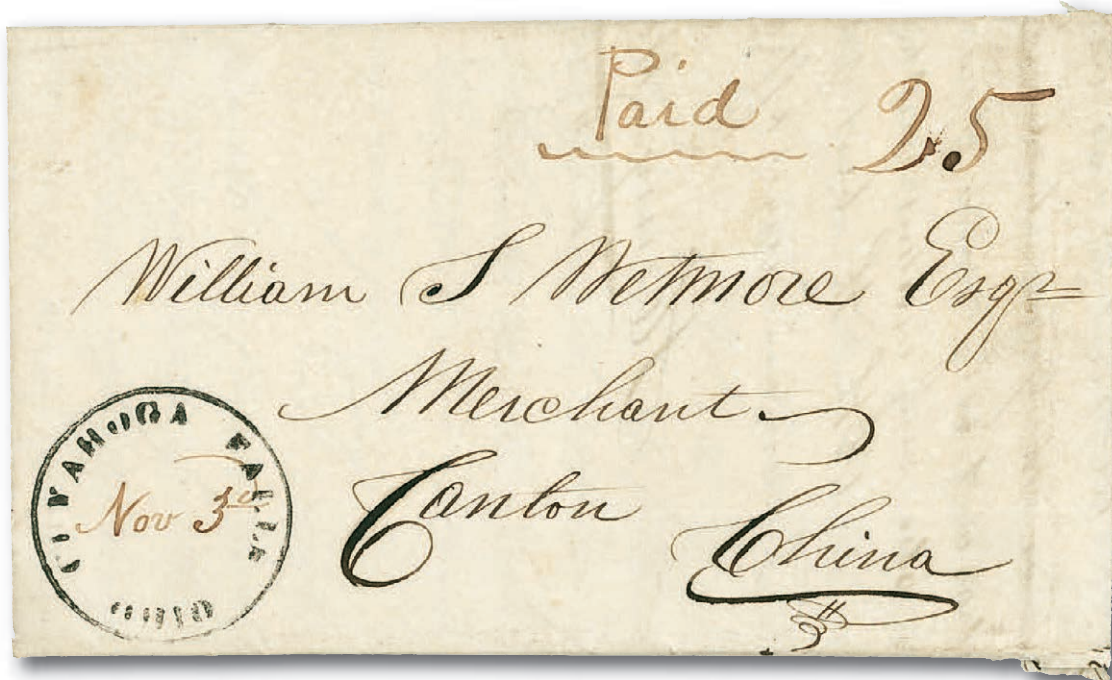 Paid 25
William S Wetmore Esqr
Merchant
Canton China
CUYAHOGA FALLS
Nov 3d
OHIO